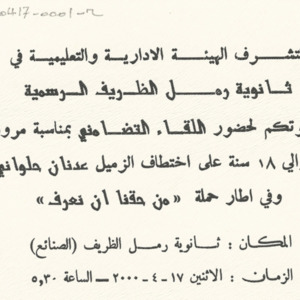 0417-0001-2
تشرف الهيئة الادارية والتعليمية في
ثانوية رمل الظريف الرسمية
وتكم لحضور اللقاء التضامني بمناسبة مرو
الي ١٨ سنة على اختطاف الزميل عدنان حلواني
وفي اطار حملة «من حقنا ان نعرف»
المكان : ثانوية رمل الظريف (الصنائع)
الزمان : الاثنين ١٧-٤-٢٠٠٠ - الساعة ٥,٣٠